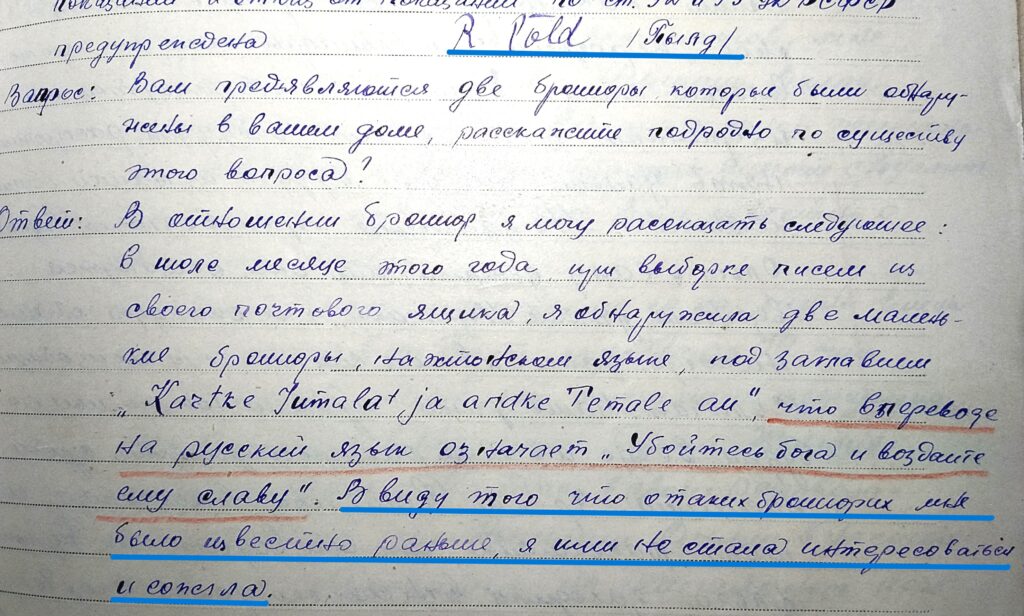 показаний и отказ от показаний по ст. 92 и 93 УК РСФСР
предупреждена R Põld /Пылд/
Вапрос: Вам предъявляются две брошюры которые были обнару-
жены в вашем доме, расскажите подродно по существу
этого вопроса?
Ответ: В отношении брошюр я могу рассказать следующее:
в июле месяце этого года, при выборке писем из
своего почтового ящика, я обнаружила две малень-
кие брошюры, на эстонском языке, под заглавием
„Kartke Jumalat ja andke Temale au", что в переводе
на русский язык означает „Убойтесь бога и воздайте
ему славу". В виду того что о таких брошюрах мне
было известно раньше, я ими не стала интересоваться
и сожгла.